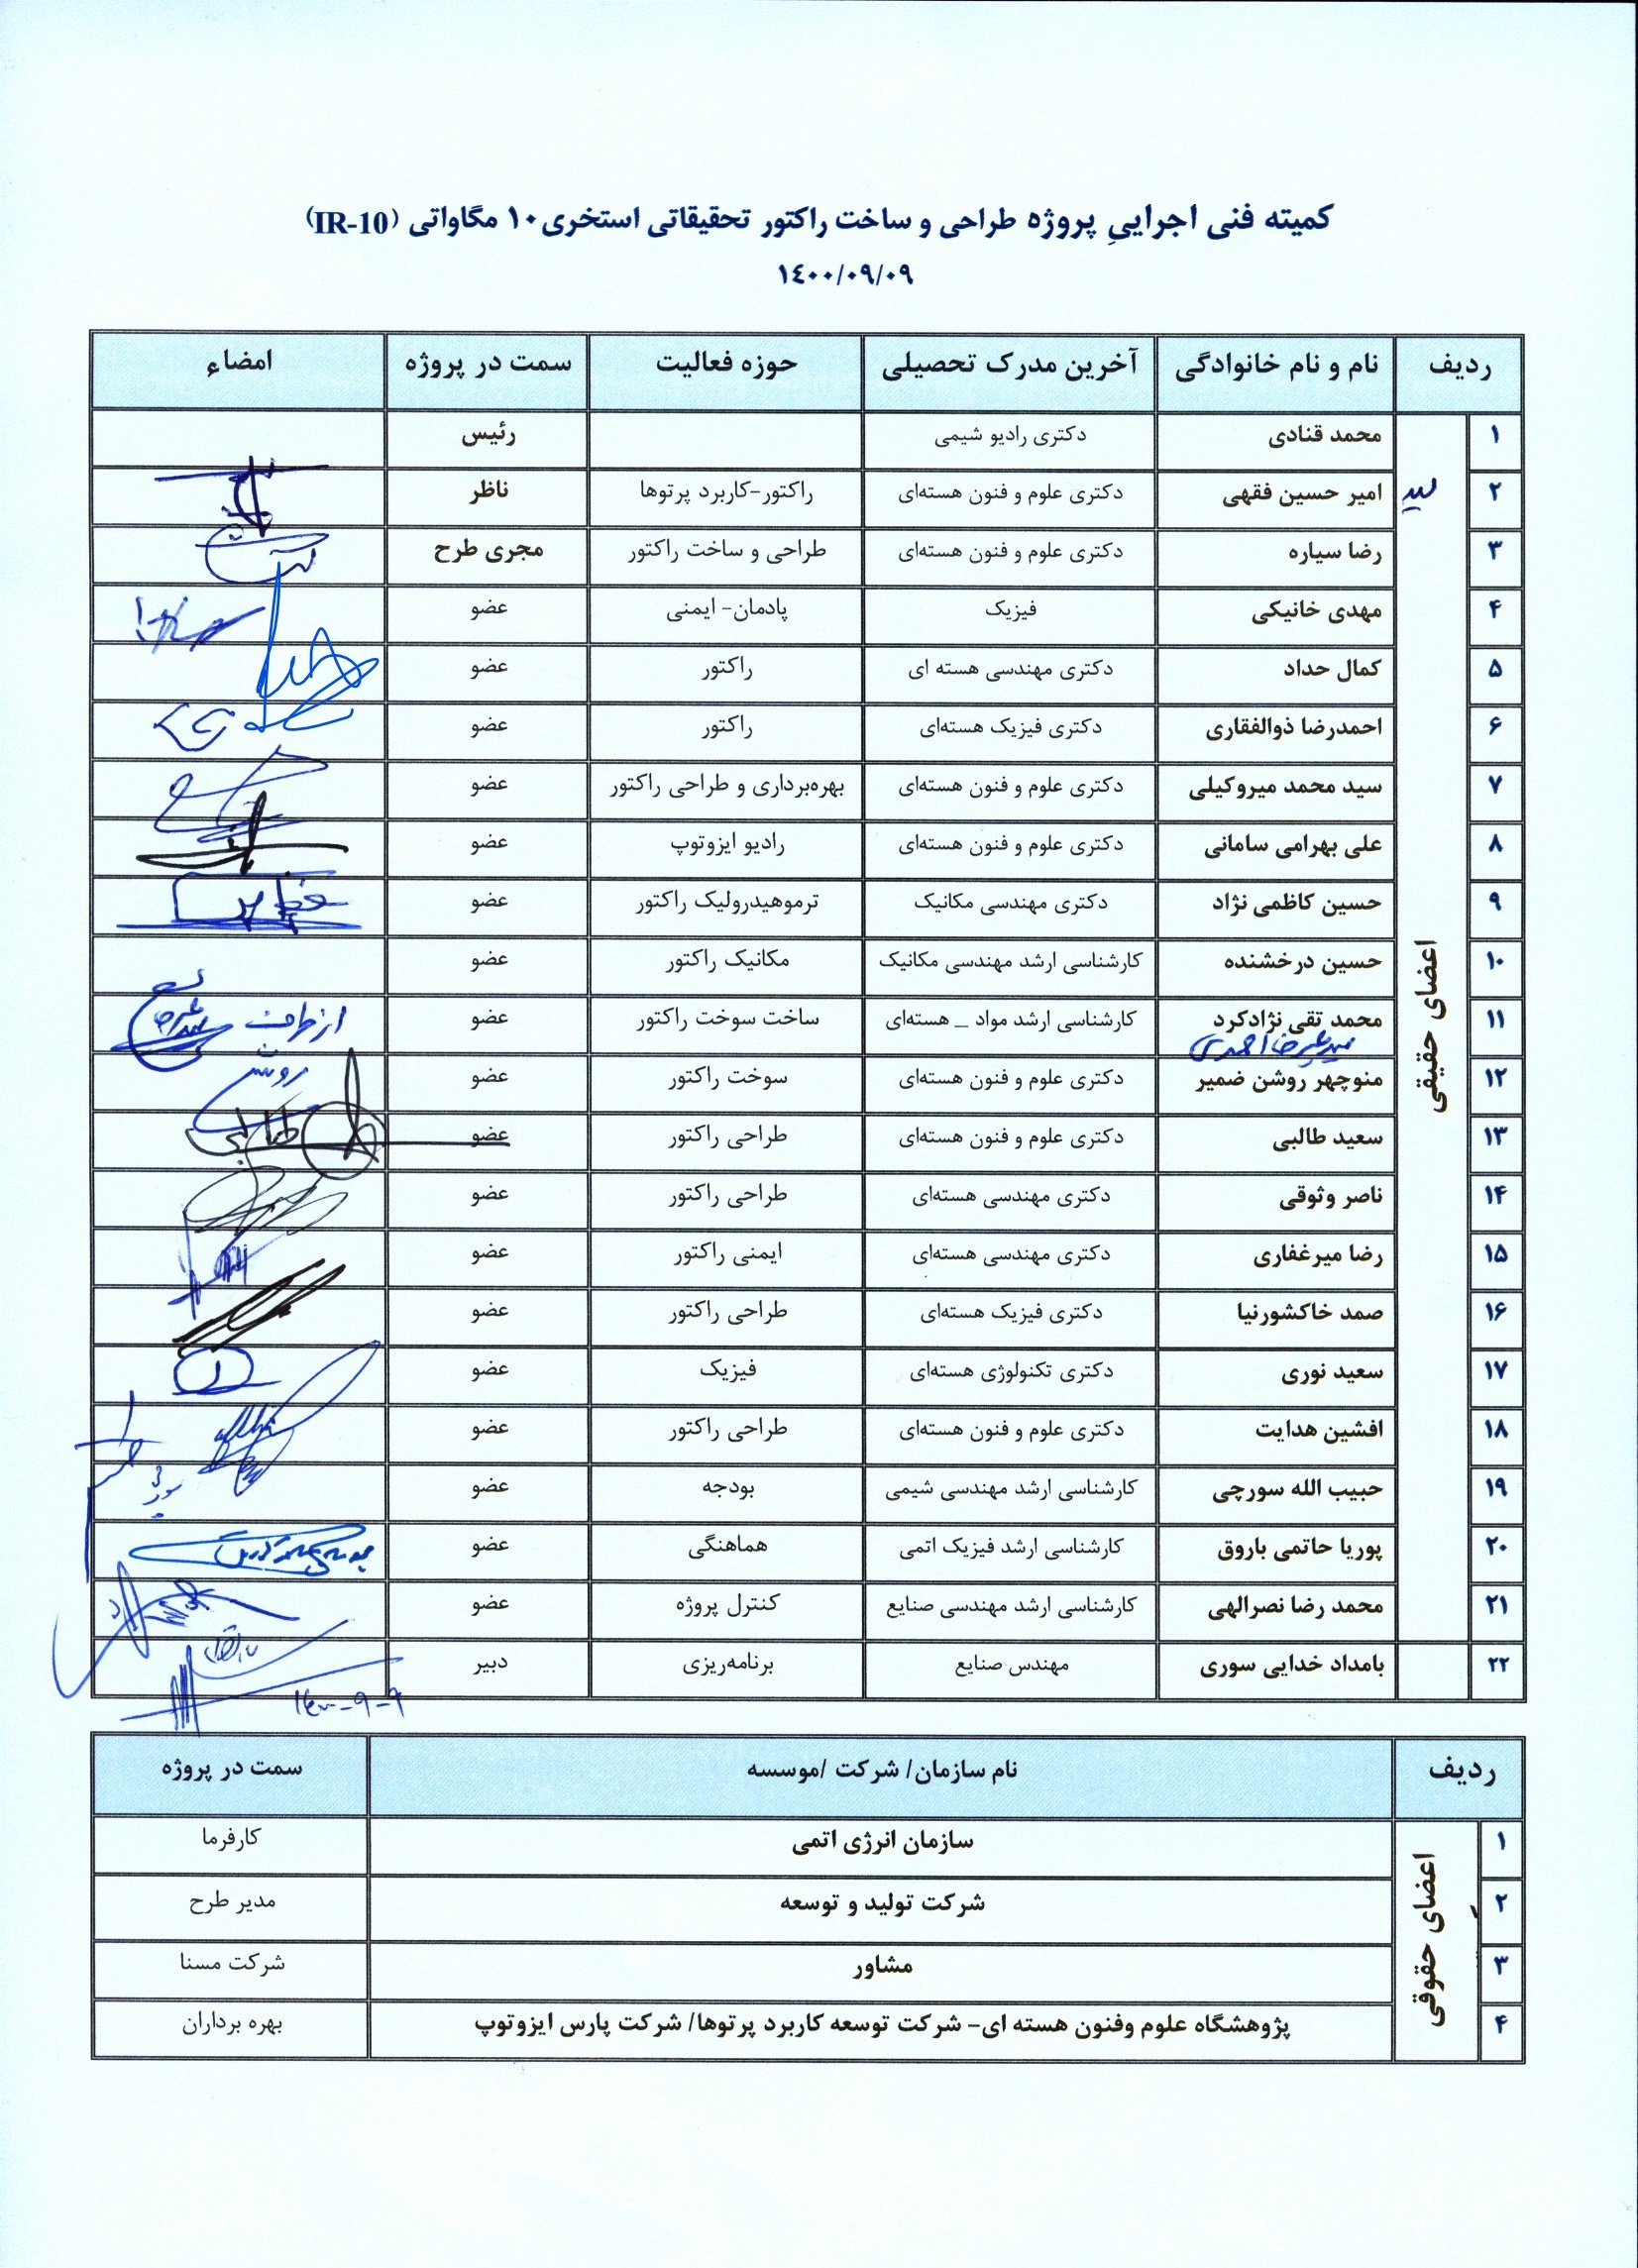 کمیته فنی اجراییِ پروژه طراحی و ساخت راکتور تحقیقاتی استخری۱۰ مگاواتی (IR-10)
۱٤۰۰/۰۹/۰۹
ردیف نام و نام خانوادگی آخرین مدرک تحصیلی حوزه فعالیت سمت در پروژه امضاء
اعضای حقیقی
۱ محمد قنادی دکتری رادیو شیمی رئیس
۲ سید امیر حسین فقهی دکتری علوم و فنون هسته‌ای راکتور-کاربرد پرتوها ناظر
۳ رضا سیاره دکتری علوم و فنون هسته‌ای طراحی و ساخت راکتور مجری طرح
۴ مهدی خانیکی فیزیک پادمان- ایمنی عضو
۵ کمال حداد دکتری مهندسی هسته ای راکتور عضو
۶ احمدرضا ذوالفقاری دکتری فیزیک هسته‌ای راکتور عضو
۷ سید محمد میروکیلی دکتری علوم و فنون هسته‌ای بهره‌برداری و طراحی راکتور عضو
۸ علی بهرامی سامانی دکتری علوم و فنون هسته‌ای رادیو ایزوتوپ عضو
۹ حسین کاظمی نژاد دکتری مهندسی مکانیک ترموهیدرولیک راکتور عضو
۱۰ حسین درخشنده کارشناسی ارشد مهندسی مکانیک مکانیک راکتور عضو
۱۱ محمد تقی نژادکرد کارشناسی ارشد مواد _ هسته‌ای ساخت سوخت راکتور عضو از طرف
سید علیرضا احمدی
۱۲ منوچهر روشن ضمیر دکتری علوم و فنون هسته‌ای سوخت راکتور عضو روشن
۱۳ سعید طالبی دکتری علوم و فنون هسته‌ای طراحی راکتور عضو طالبی
۱۴ ناصر وثوقی دکتری مهندسی هسته‌ای طراحی راکتور عضو
۱۵ رضا میرغفاری دکتری مهندسی هسته‌ای ایمنی راکتور عضو
۱۶ صمد خاکشورنیا دکتری فیزیک هسته‌ای طراحی راکتور عضو
۱۷ سعید نوری دکتری تکنولوژی هسته‌ای فیزیک عضو
۱۸ افشین هدایت دکتری علوم و فنون هسته‌ای طراحی راکتور عضو
۱۹ حبیب الله سورچی کارشناسی ارشد مهندسی شیمی بودجه عضو
۲۰ پوریا حاتمی باروق کارشناسی ارشد فیزیک اتمی هماهنگی عضو
۲۱ محمد رضا نصرالهی کارشناسی ارشد مهندسی صنایع کنترل پروژه عضو
۲۲ بامداد خدایی سوری مهندس صنایع برنامه‌ریزی دبیر
۱۴۰۰-۹-۹
ردیف نام سازمان/ شرکت /موسسه سمت در پروژه
اعضای حقوقی
۱ سازمان انرژی اتمی کارفرما
۲ شرکت تولید و توسعه مدیر طرح
۳ مشاور شرکت مسنا
۴ پژوهشگاه علوم وفنون هسته ای- شرکت توسعه کاربرد پرتوها/ شرکت پارس ایزوتوپ بهره برداران